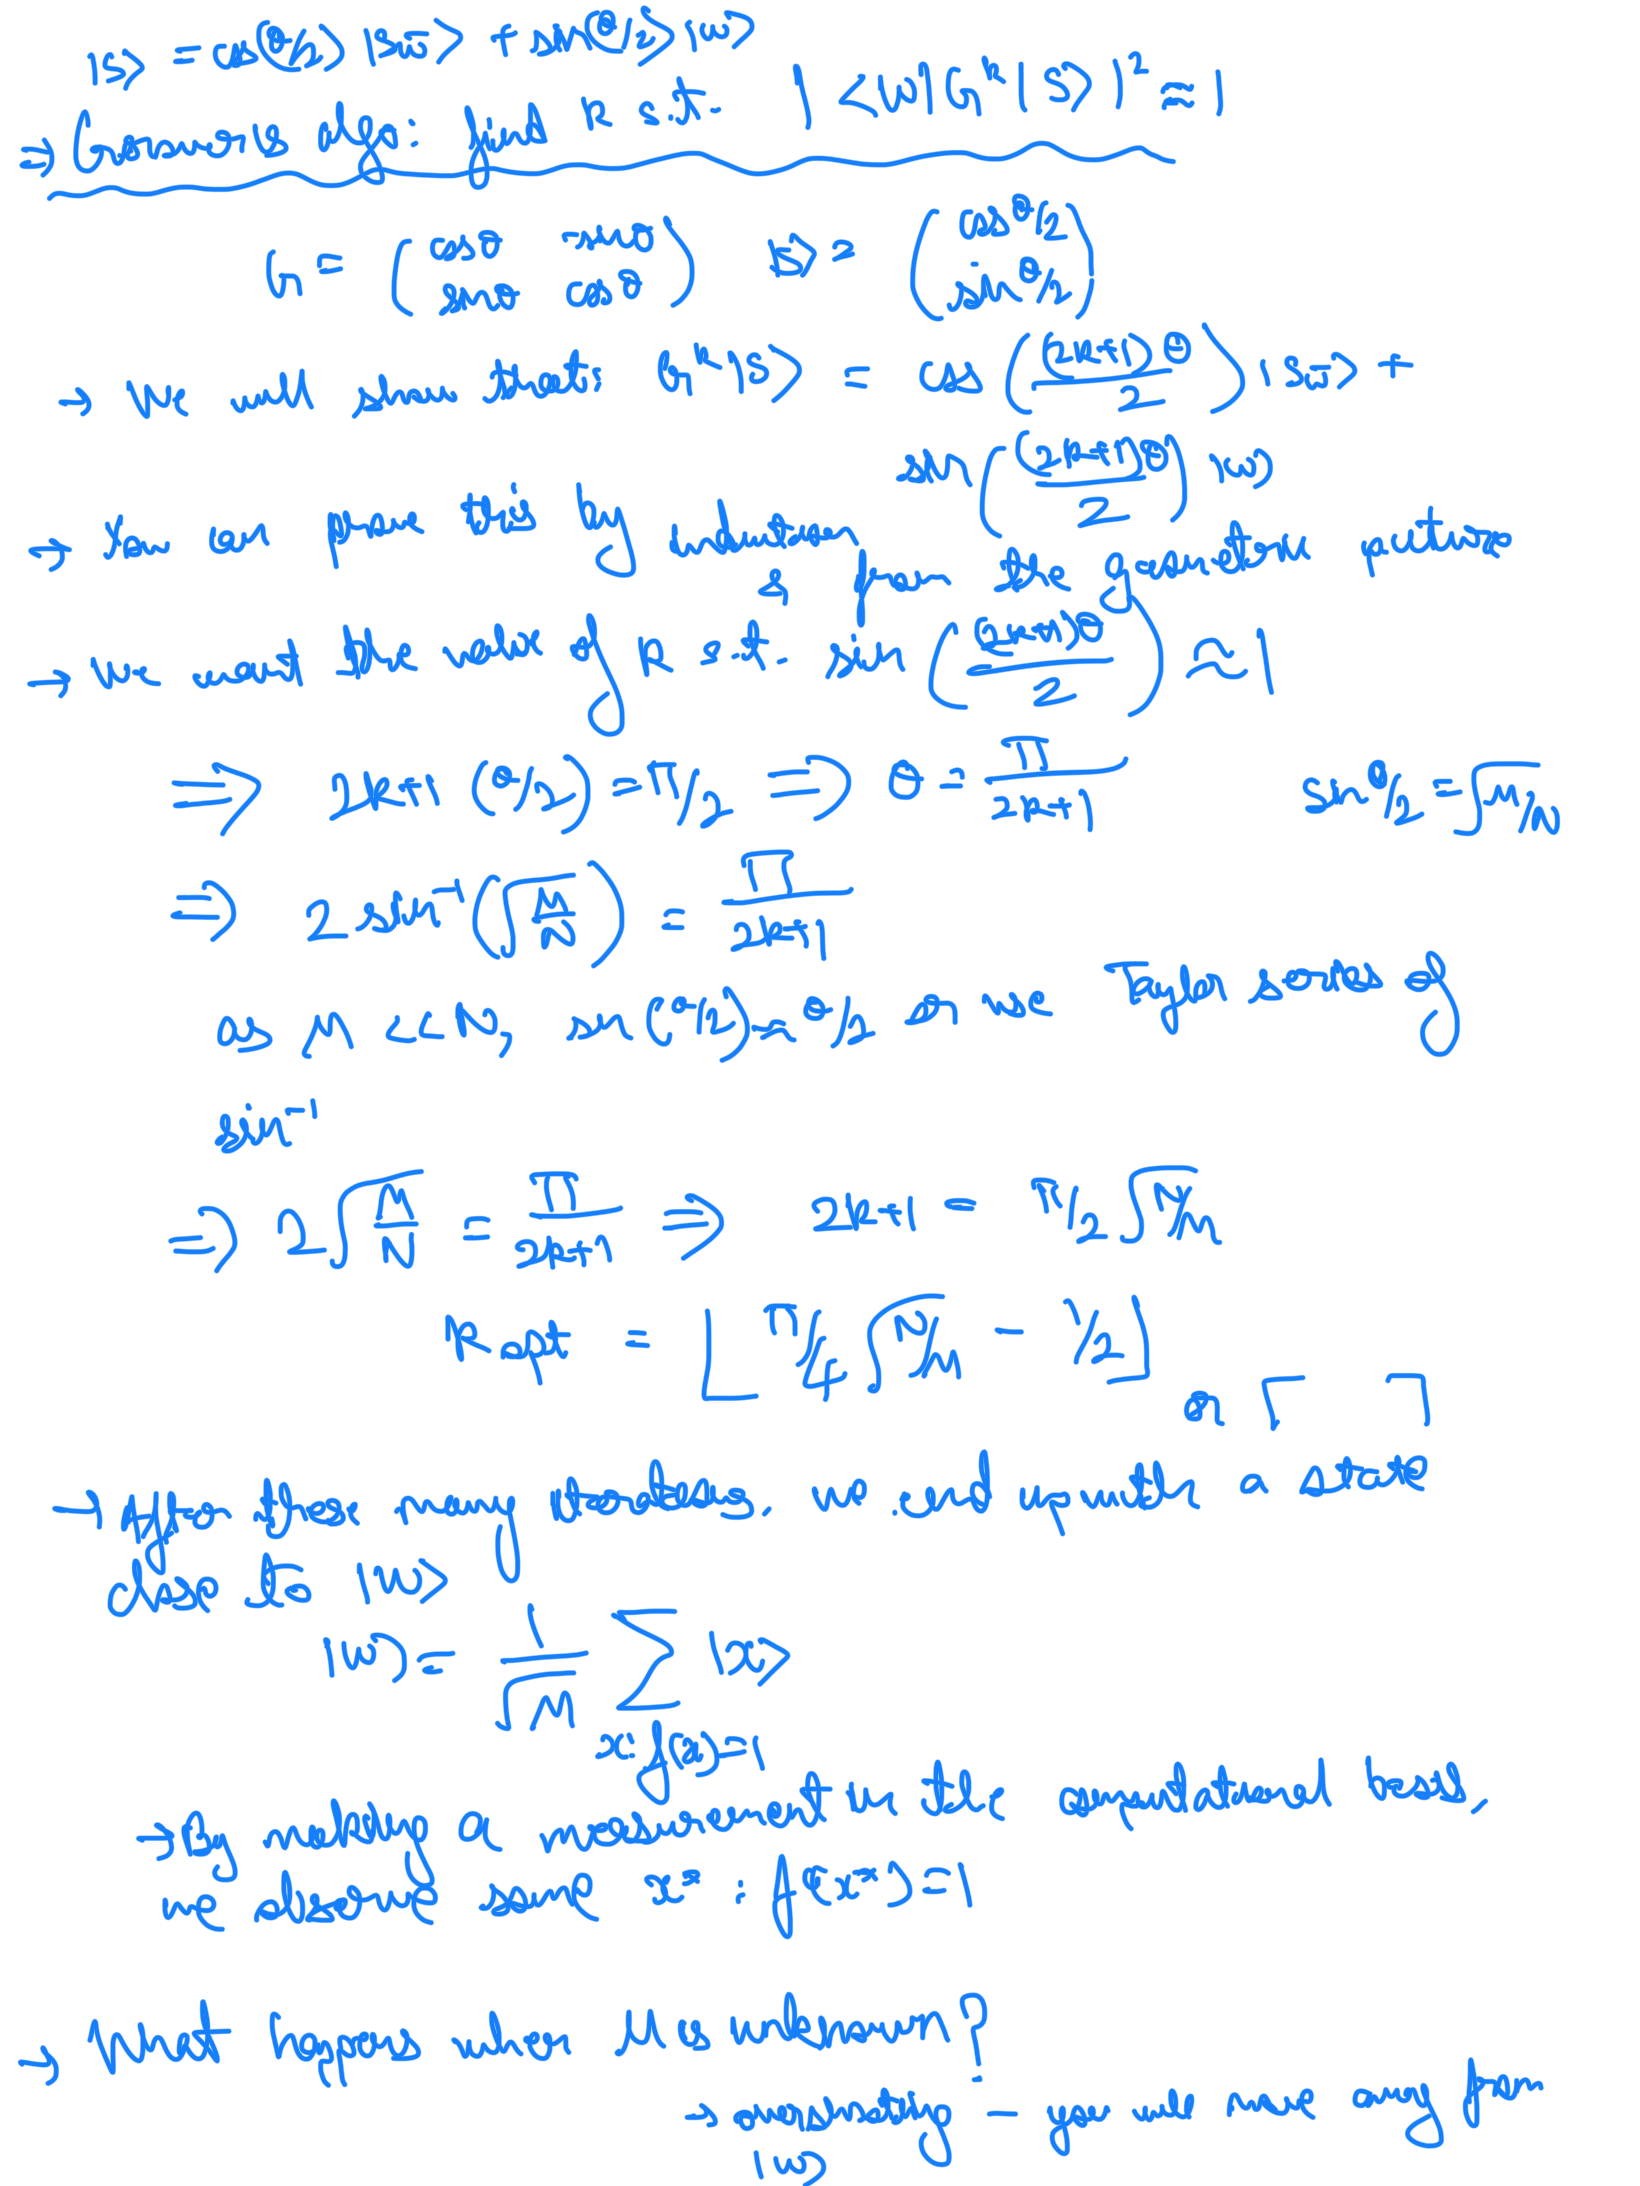 |s> = cos(θ/2) |s̄ω> + sin(θ/2) |ω>
⇒ Grover's alg: find k s.t. |<ω|G^k|s>|² ≈ 1
G = (cosθ -sinθ; sinθ cosθ) |s> = (cosθ/2; sinθ/2)
→ We will show that: G^k|s> = cos((2k+1)θ/2) |s̄ω> +
sin((2k+1)θ/2) |ω>
→ You can prove this by induction, & from the geometric picture
→ We want the value of k s.t. sin((2k+1)θ/2) ≈ 1
⇒ 2k+1 (θ/2) = π/2 ⇒ θ = π/(2k+1) sin θ/2 = √M/N
⇒ 2 sin⁻¹(√(M/N)) = π/(2k+1)
as M << N, sin(θ/2) ≈ θ/2 or use Taylor series of
sin⁻¹
⇒ 2√(M/N) = π/(2k+1) ⇒ 2k+1 = π/2 √N/M
k opt = ⌊π/4 √N/M - 1/2⌋
or ⌈ ⌉
→ After these many iterations, we end up with a state
close to |ω>
|ω> = 1/√M Σ |x>
x:f(x)=1
→ By making a measurement in the computational basis,
we observe some x* : f(x*) = 1
→ What happens when M is unknown?
→ overshooting - you will move away from
|ω>